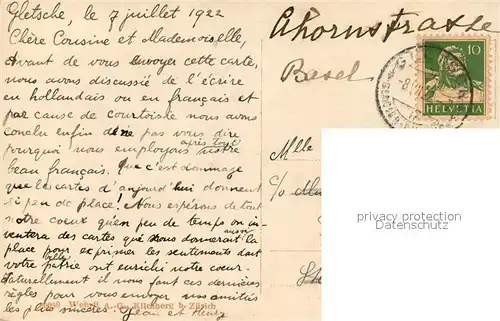 Gletsche, le 7 juillet 1922
Chère Cousine et Mademoiselle,
Avant de vous envoyer cette carte,
nous avons discussié de l'écrire
en hollandais ou en français et
par cause de courtoisie nous avons
conclu enfin de ne pas vous dire
pourquoi nous employons après tout notre
beau français. Que c'est dommage
que les cartes d'aujourd'hui donnent
si peu de place! Nous espérons de tout
notre coeur qu'en peu de temps on in-
ventera des cartes que nous donneront aussi la
place pour exprimer les sentiments dont
votre belle patrie ont enrichi notre coeur.
Naturellement il nous faut ces dernières
règles pour vous envoyer nos amitiés
les plus sincères. Jean et Henry
Wehrli A.-G., Kilchberg b. Zürich
Ahornstrasse
Basel
10
HELVETIA
Mlle
c/o
privacy protection
Datenschutz